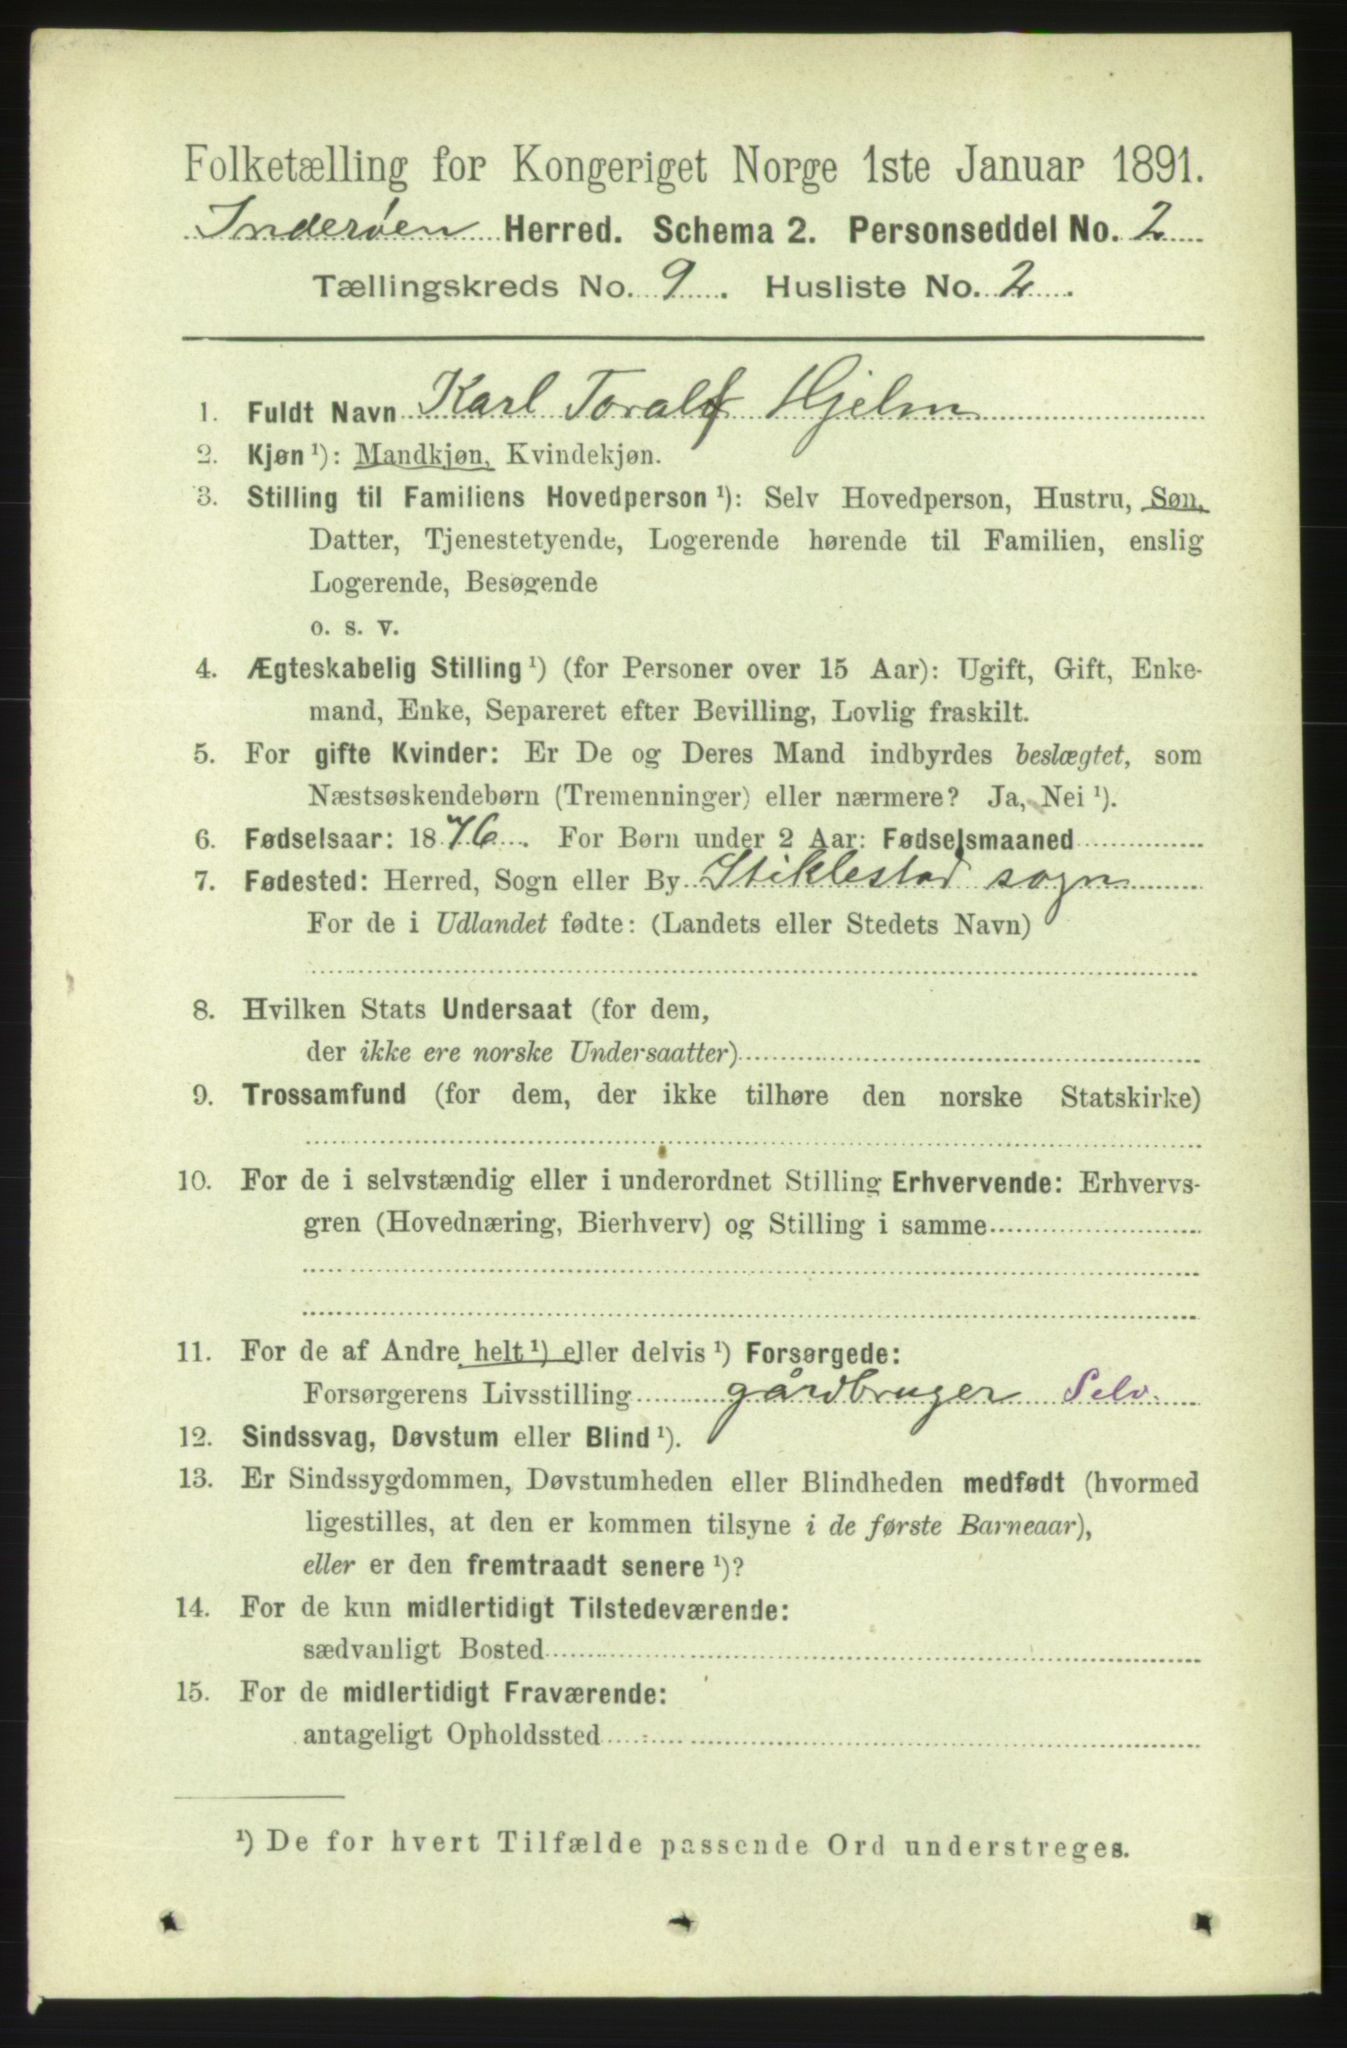 Folketælling for Kongeriget Norge 1ste Januar 1891.
Inderøen Herred. Schema 2. Personseddel No. 2
Tællingskreds No. 9. Husliste No. 2.
1. Fuldt Navn Karl Toralf Hjelm
2. Kjøn ¹): Mandkjøn, Kvindekjøn.
3. Stilling til Familiens Hovedperson ¹): Selv Hovedperson, Hustru, Søn,
Datter, Tjenestetyende, Logerende hørende til Familien, enslig
Logerende, Besøgende
o. s. v.
4. Ægteskabelig Stilling ¹) (for Personer over 15 Aar): Ugift, Gift, Enke-
mand, Enke, Separeret efter Bevilling, Lovlig fraskilt.
5. For gifte Kvinder: Er De og Deres Mand indbyrdes beslægtet, som
Næstsøskendebørn (Tremenninger) eller nærmere? Ja, Nei ¹).
6. Fødselsaar: 1876. For Børn under 2 Aar: Fødselsmaaned
7. Fødested: Herred, Sogn eller By Stiklestad sogn
For de i Udlandet fødte: (Landets eller Stedets Navn)
8. Hvilken Stats Undersaat (for dem,
der ikke ere norske Undersaatter)
9. Trossamfund (for dem, der ikke tilhøre den norske Statskirke)
10. For de i selvstændig eller i underordnet Stilling Erhvervende: Erhvervs-
gren (Hovednæring, Bierhverv) og Stilling i samme
11. For de af Andre helt ¹) eller delvis ¹) Forsørgede:
Forsørgerens Livsstilling gårdbruger Selv.
12. Sindssvag, Døvstum eller Blind ¹).
13. Er Sindssygdommen, Døvstumheden eller Blindheden medfødt (hvormed
ligestilles, at den er kommen tilsyne i de første Barneaar),
eller er den fremtraadt senere ¹)?
14. For de kun midlertidigt Tilstedeværende:
sædvanligt Bosted
15. For de midlertidigt Fraværende:
antageligt Opholdssted
¹) De for hvert Tilfælde passende Ord understreges.